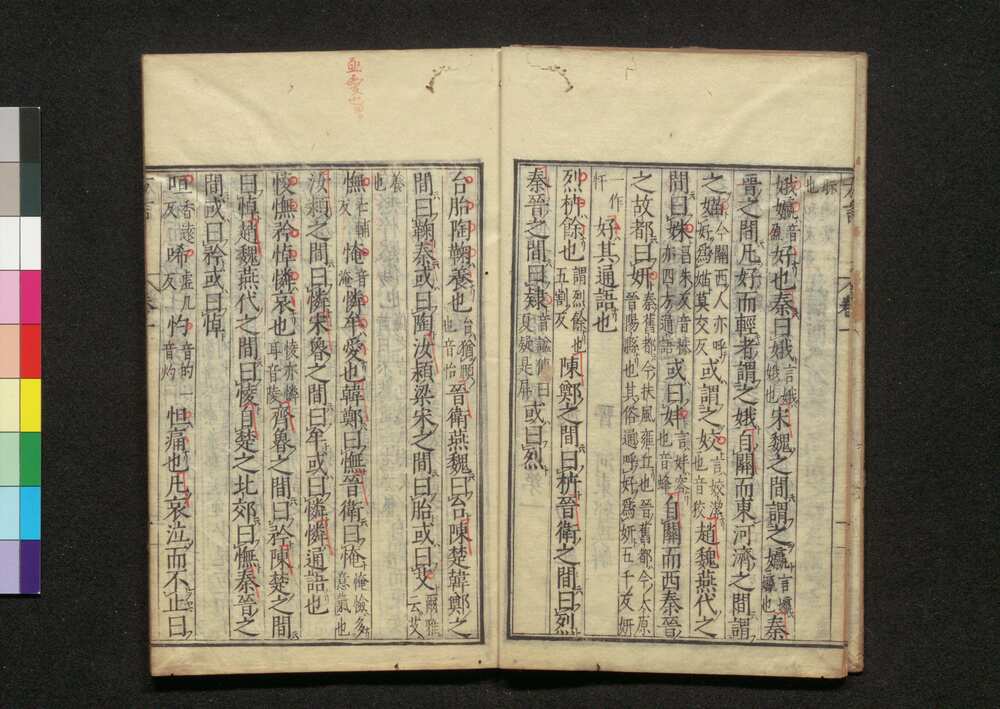 娥㜲音盈好也秦曰娥言娥娥也宋魏之間謂之㜲言㜲㜲也秦
晉之間凡好而輕者謂之娥自關而東河濟之間謂
之媌今關西人亦呼好爲媌莫交反或謂之姣言姣潔也音狡趙魏燕代之
間曰姝昌朱反音株亦四方通語或曰妦言妦容也音蜂自關而西秦晉
之故都曰妍秦舊都今扶風雍丘也晉舊都今太原晉陽縣也其俗通呼好爲妍五千反妍
一作忓好其通語也
烈枿餘也謂烈餘也五割反陳鄭之間曰枿晉衛之間曰烈
秦晉之間曰肄音謚傳曰夏肄是屏或曰烈
台胎陶鞠養也台猶頤也音怡晉衛燕魏曰台陳楚韓鄭之
間曰鞠秦或曰陶汝潁梁宋之間曰胎或曰艾爾雅云艾
養也
憮亡輔反㤿音淹憐牟愛也韓鄭曰憮晉衛曰㤿㤿憸多意氣也
汝潁之間曰憐宋魯之間曰牟或曰憐憐通語也
㥄憮矜悼憐哀也㥄亦憐耳音陵齊魯之間曰矜陳楚之間
曰悼趙魏燕代之間曰㥄自楚之北郊曰憮秦晉之
間或曰矜或曰悼
咺香遠反唏虛几反怛音的一音灼怛痛也凡哀泣而不止曰